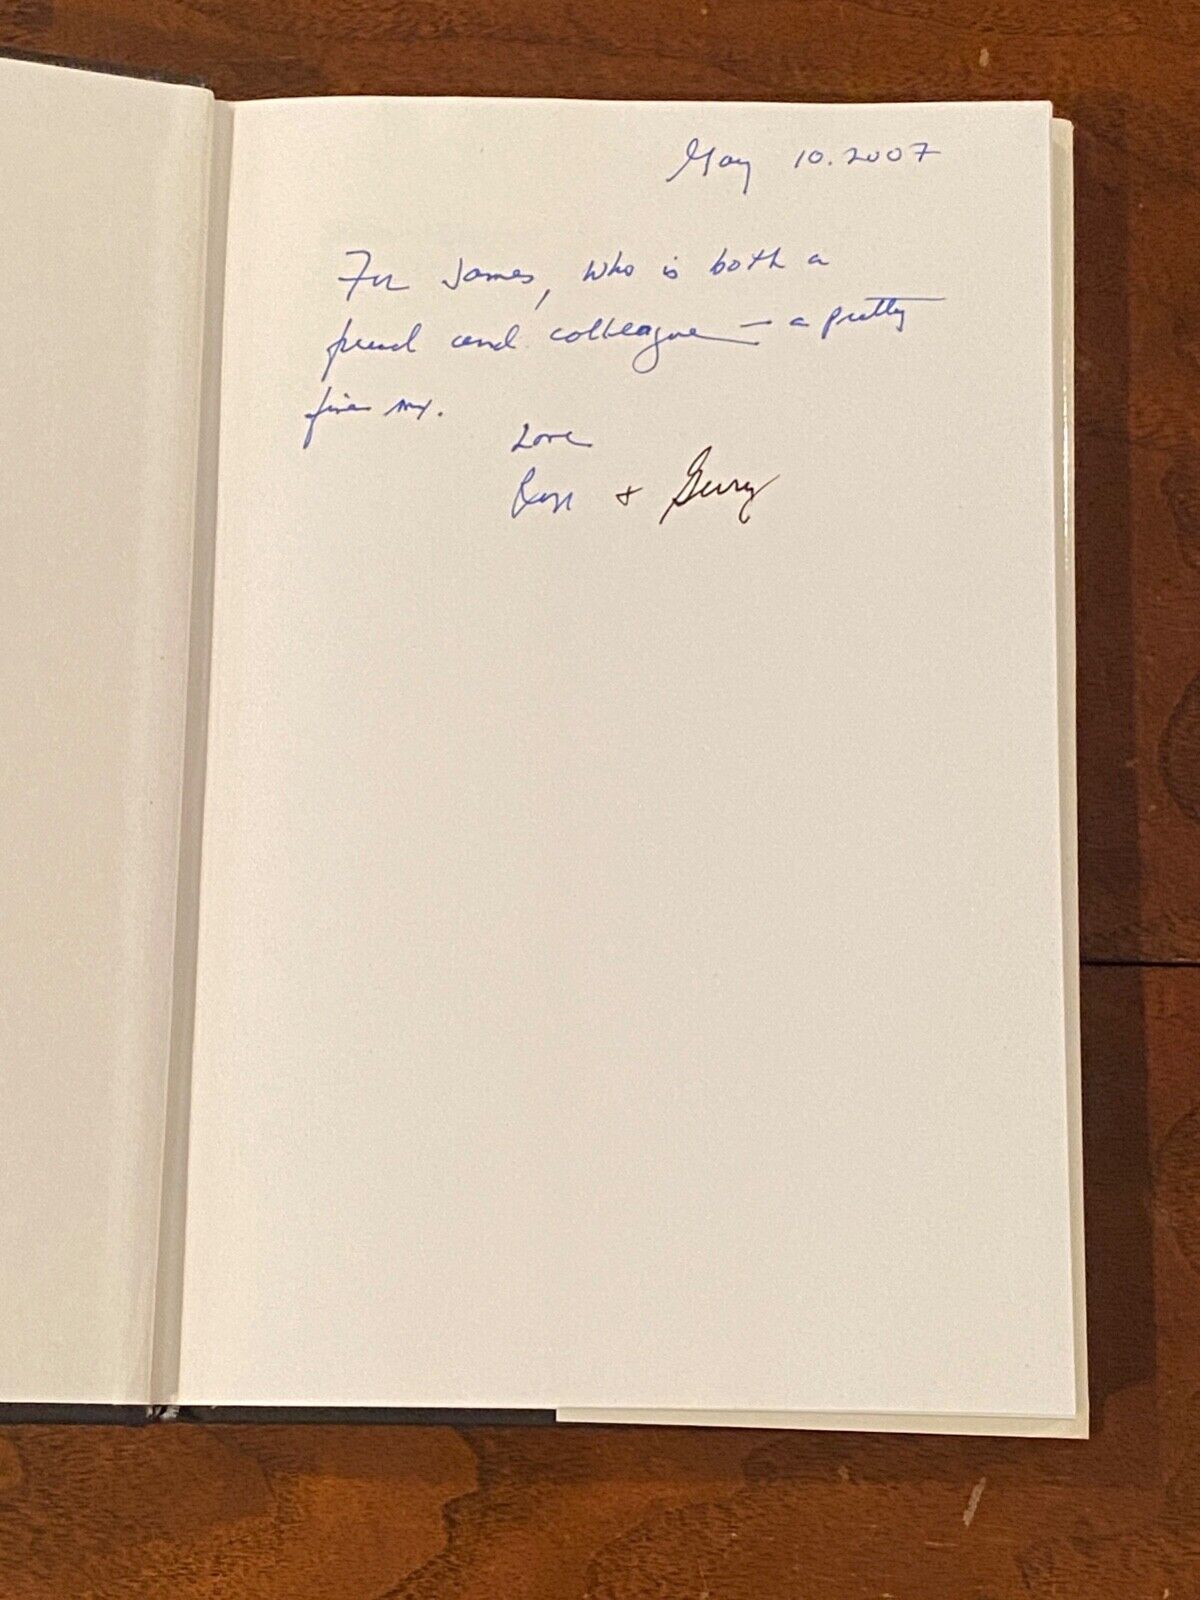 May 10. 2007
For James, who is both a
friend and colleague — a pretty
fine mix.
Love
+ Gerry